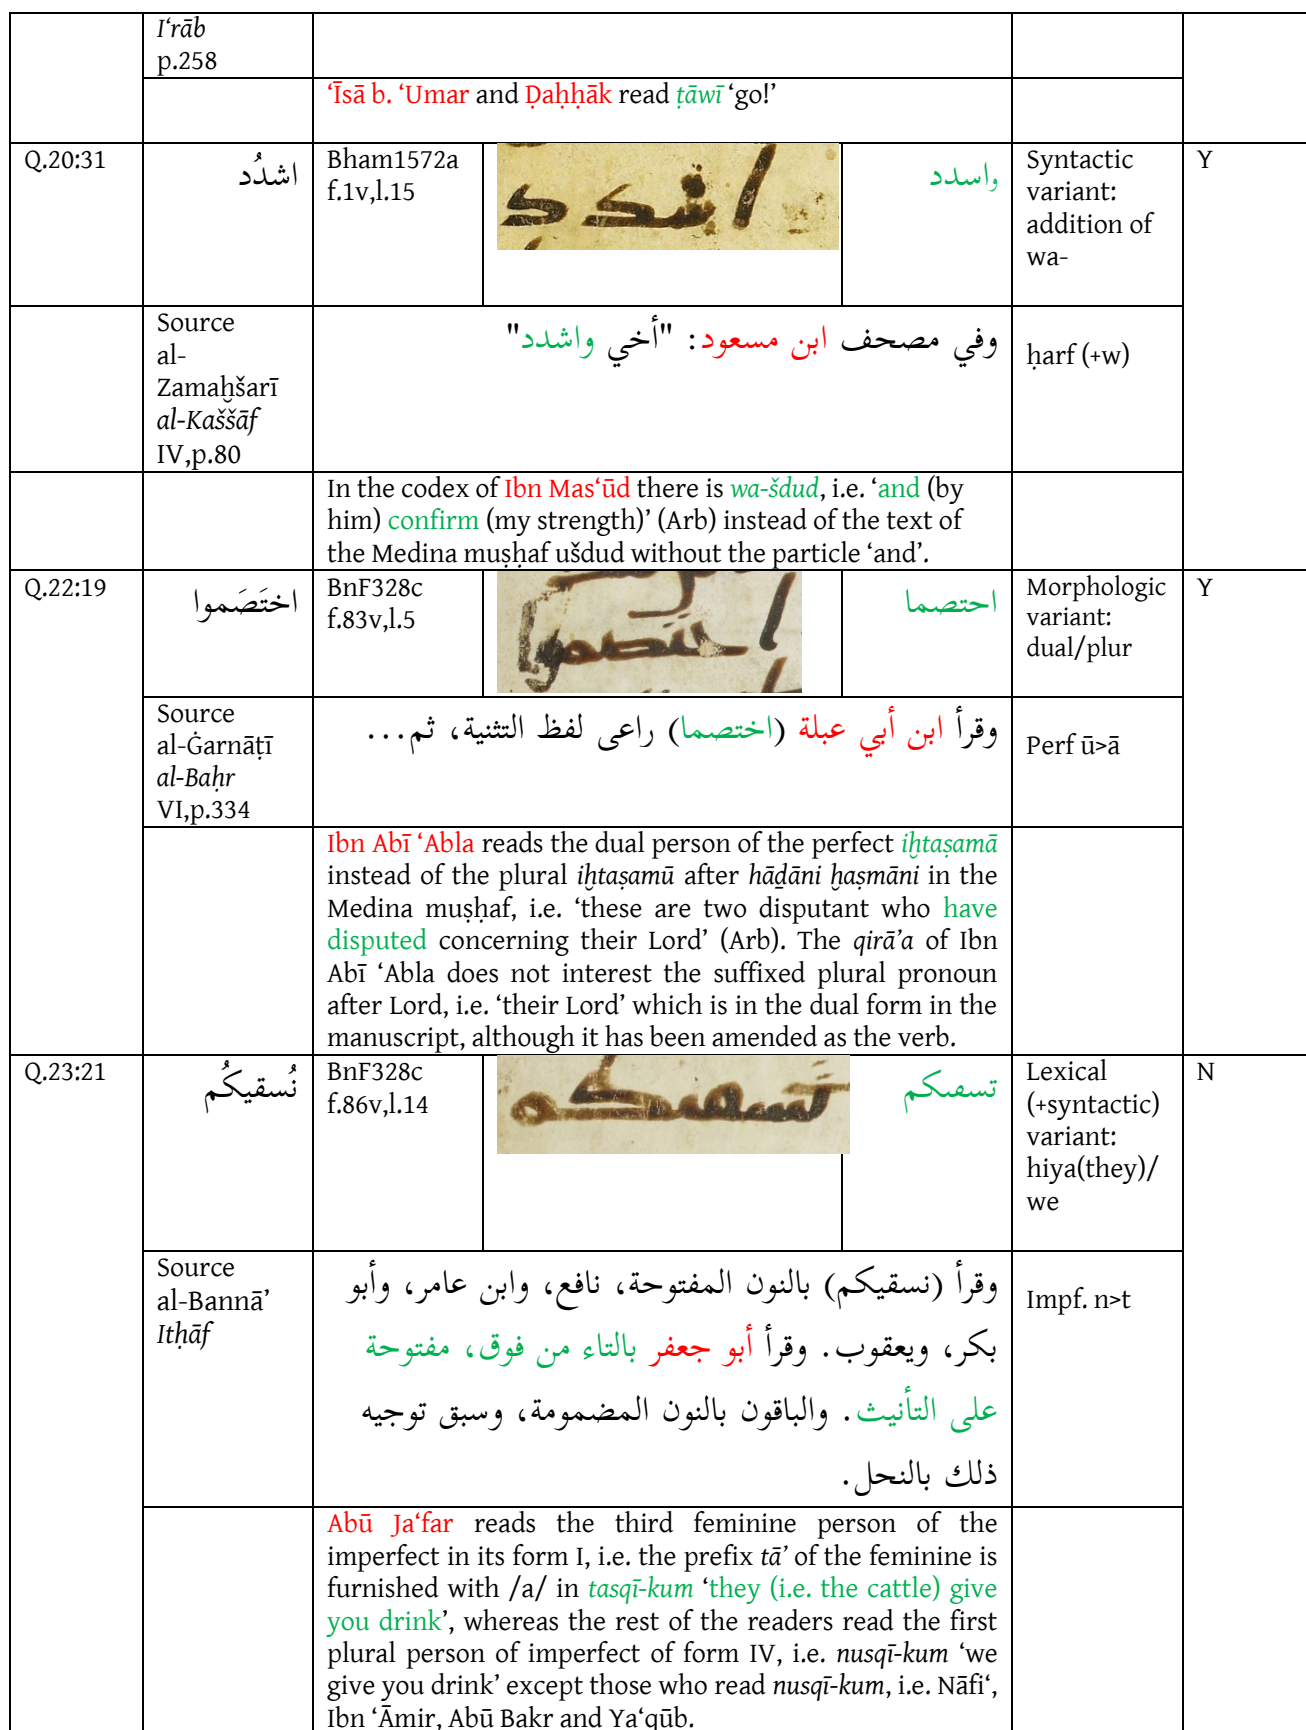 I‘rāb
p.258
‘Īsā b. ‘Umar and Ḍaḥḥāk read ṭāwī ‘go!’
Q.20:31
اشدُد
Bham1572a
f.1v,l.15
اشدد
واسدد
Syntactic
variant:
addition of
wa-
Y
Source
al-
Zamaḫšarī
al-Kaššāf
IV,p.80
وفي مصحف ابن مسعود: "أخي واشدد"
ḥarf (+w)
In the codex of Ibn Mas‘ūd there is wa-šdud, i.e. ‘and (by
him) confirm (my strength)’ (Arb) instead of the text of
the Medina muṣḥaf ušdud without the particle ‘and’.
Q.22:19
اختَصَموا
BnF328c
f.83v,l.5
احتصموا
احتصما
Morphologic
variant:
dual/plur
Y
Source
al-Ġarnāṭī
al-Baḥr
VI,p.334
وقرأ ابن أبي عبلة (اختصما) راعى لفظ التثنية، ثم...
Perf ū>ā
Ibn Abī ‘Abla reads the dual person of the perfect iḫtaṣamā
instead of the plural iḫtaṣamū after hāḏāni ḫaṣmāni in the
Medina muṣḥaf, i.e. ‘these are two disputant who have
disputed concerning their Lord’ (Arb). The qirā’a of Ibn
Abī ‘Abla does not interest the suffixed plural pronoun
after Lord, i.e. ‘their Lord’ which is in the dual form in the
manuscript, although it has been amended as the verb.
Q.23:21
نُسقيكُم
BnF328c
f.86v,l.14
تسفىكم
تسفىكم
Lexical
(+syntactic)
variant:
hiya(they)/
we
N
Source
al-Bannā’
Itḥāf
وقرأ (نسقيكم) بالنون المفتوحة، نافع، وابن عامر، وأبو
بكر، ويعقوب. وقرأ أبو جعفر بالتاء من فوق، مفتوحة
على التأنيث. والباقون بالنون المضمومة، وسبق توجيه
ذلك بالنحل.
Impf. n>t
Abū Ja‘far reads the third feminine person of the
imperfect in its form I, i.e. the prefix tā’ of the feminine is
furnished with /a/ in tasqī-kum ‘they (i.e. the cattle) give
you drink’, whereas the rest of the readers read the first
plural person of imperfect of form IV, i.e. nusqī-kum ‘we
give you drink’ except those who read nusqī-kum, i.e. Nāfi‘,
Ibn ‘Āmir, Abū Bakr and Ya‘qūb.